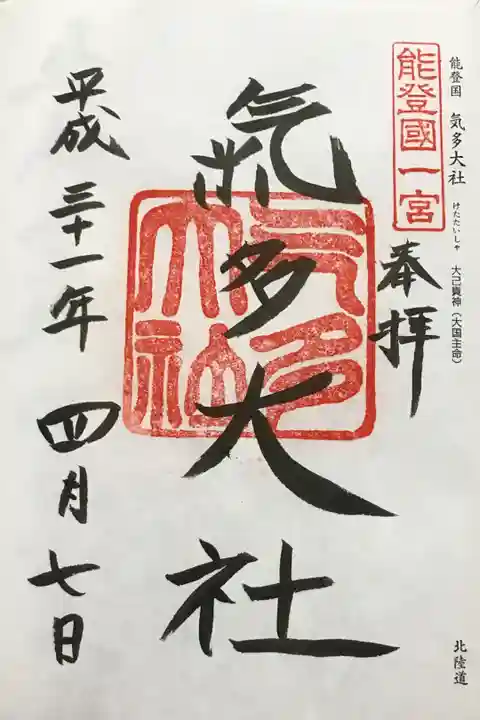 能登国 気多大社 けたたいしゃ 大己貴神(大国主命)
北陸道
能登國一宮
奉拝
氣多大社
気多大社
平成三十一年四月七日